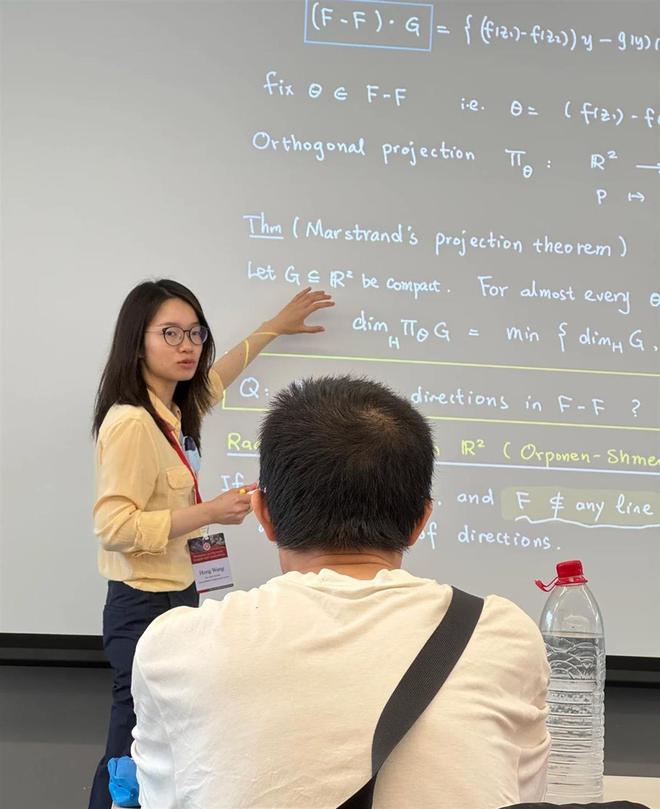 (F-F)·G = { (f(z₁)-f(z₂))y - g(y)
fix θ ∈ F-F i.e. θ = (f(z₁)-f
Orthogonal projection π_θ : ℝ² →
p ↦
Thm (Marstrand's projection theorem)
Let G ⊆ ℝ² be compact. For almost every θ
dim_H π_θ G = min { dim_H G,
Q: directions in F-F ?
ℝ² (Orponen-Shme
If and F ⊄ any line
of directions.
Hong Wang